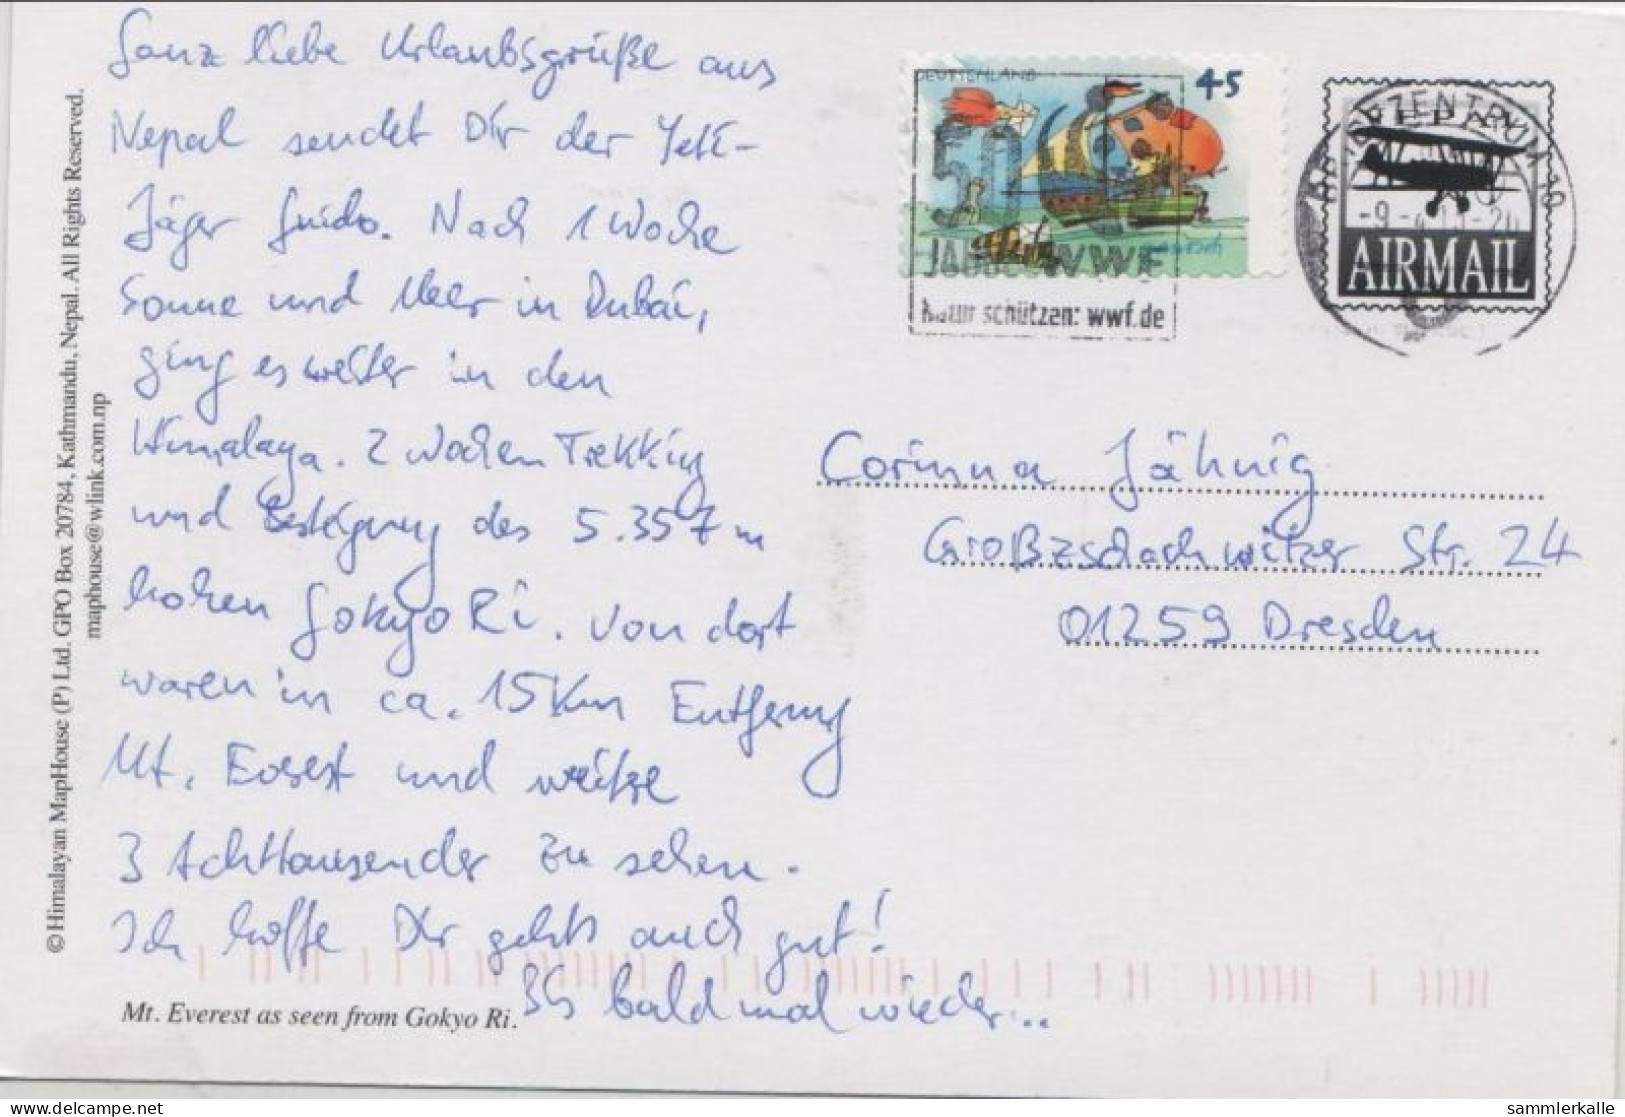 Ganz liebe Urlaubsgrüße aus
Nepal sendet Dir der Yeti-
Jäger Guido. Nach 1 Woche
Sonne und Meer in Dubai,
ging es weiter in den
Himalaya. 2 Wochen Trekking
und Besteigung des 5.357 m
hohen Gokyo Ri. Von dort
waren in ca. 15 Km Entfernung
Mt. Everest und weitere
3 Achttausender zu sehen.
Ich hoffe Dir gehts auch gut!
Bis bald mal wieder...
Mt. Everest as seen from Gokyo Ri.
©Himalayan MapHouse (P) Ltd. GPO Box 20784, Kathmandu, Nepal. All Rights Reserved.
maphouse@wlink.com.np
DEUTSCHLAND 45
janosch
50
JAHRE WWF
Natur schützen: wwf.de
BRIEFZENTRUM 10
NEPAL
AIRMAIL
Corinna Jähnig
Großzschachwitzer Str. 24
01259 Dresden
sammlerkalle